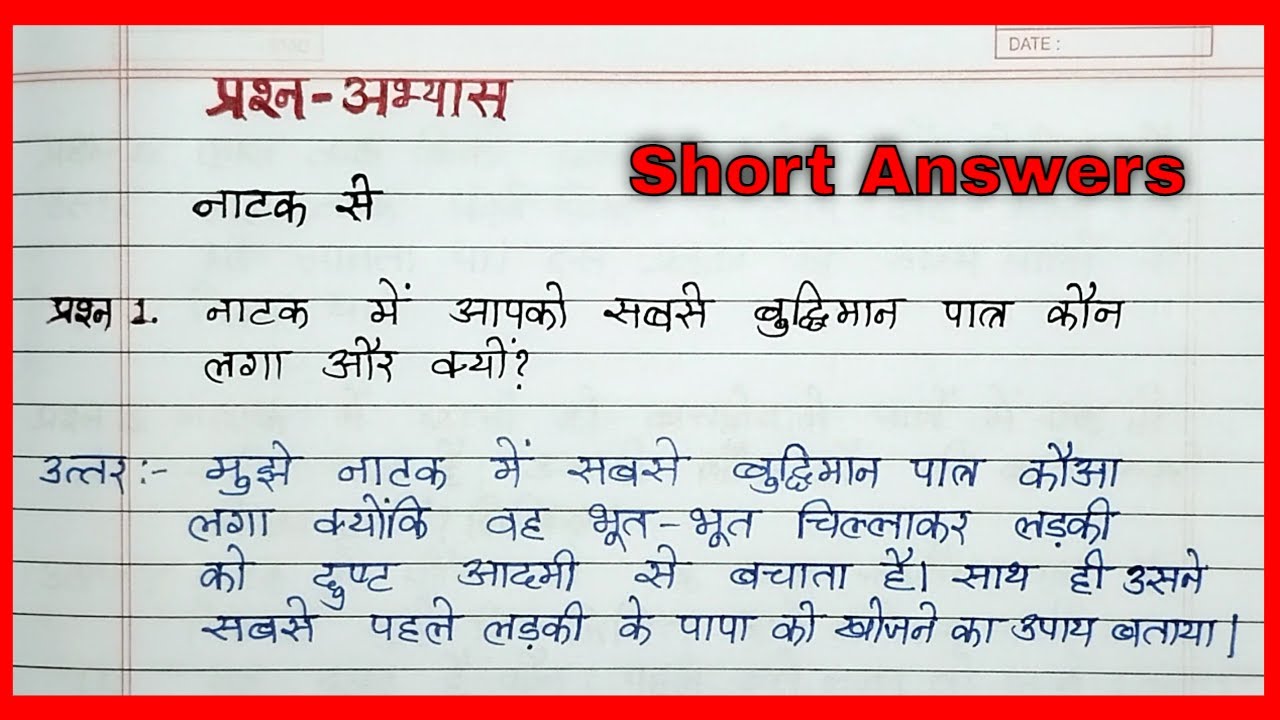 DATE :
प्रश्न-अभ्यास
Short Answers
नाटक से
प्रश्न 1. नाटक में आपको सबसे बुद्धिमान पात्र कौन
लगा और क्यों?
उत्तर:- मुझे नाटक में सबसे बुद्धिमान पात्र कौआ
लगा क्योंकि वह भूत-भूत चिल्लाकर लड़की
को दुष्ट आदमी से बचाता है। साथ ही उसने
सबसे पहले लड़की के पापा को खोजने का उपाय बताया।